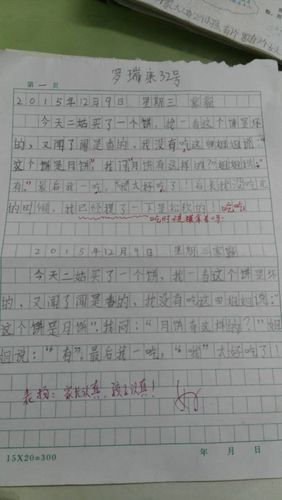 罗瑞康32号
第一页
2015年12月9日 星期三 雾霾
今天二姑买了一个饼,我一看这个饼是坏
的,又闻了闻是香的,我没有吃这
这个饼是月饼"我问"月饼有这样的?"姐姐说:
有"最后我一吃,"啪"太好吃了!
的时候,我已经摸了一下是松软的
2015年12月9日 星期三雾霾
今天二姑买了一个饼,我一看这个饼是坏
的,又闻了闻是香的,我没有吃这时姐姐说:"
这个饼是月饼",我问:"月饼有这样的?"姐
姐说:"有",最后我一吃,"啪"太好吃了!
表扬:家长认真,孩子认真!
15X20=300
年 月 日